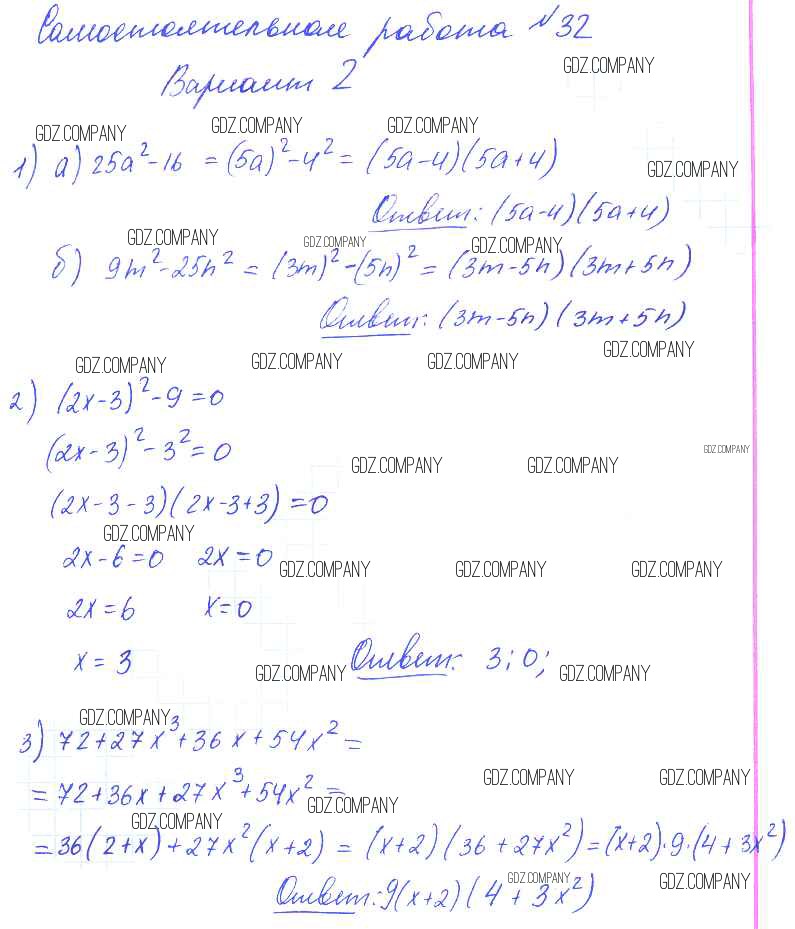 Самостоятельная работа №32
GDZ.COMPANY
Вариант 2
GDZ.COMPANY GDZ.COMPANY GDZ.COMPANY
1) а) 25a² - 16 = (5a)² - 4² = (5a-4)(5a+4)
GDZ.COMPANY
Ответ: (5a-4)(5a+4)
GDZ.COMPANY GDZ.COMPANY GDZ.COMPANY
б) 9m² - 25n² = (3m)² - (5n)² = (3m-5n)(3m+5n)
Ответ: (3m-5n)(3m+5n)
GDZ.COMPANY GDZ.COMPANY GDZ.COMPANY GDZ.COMPANY
2) (2x-3)² - 9 = 0
(2x-3)² - 3² = 0
GDZ.COMPANY GDZ.COMPANY GDZ.COMPANY
(2x-3-3)(2x-3+3) = 0
GDZ.COMPANY
2x-6=0 2x=0
GDZ.COMPANY GDZ.COMPANY GDZ.COMPANY
2x=6 x=0
x=3 Ответ: 3; 0;
GDZ.COMPANY GDZ.COMPANY
GDZ.COMPANY
3) 72+27x³+36x+54x² =
GDZ.COMPANY GDZ.COMPANY
= 72+36x+27x³+54x² =
GDZ.COMPANY
GDZ.COMPANY
= 36(2+x)+27x²(x+2) = (x+2)(36+27x²) = (x+2)·9·(4+3x²)
GDZ.COMPANY GDZ.COMPANY
Ответ: 9(x+2)(4+3x²)